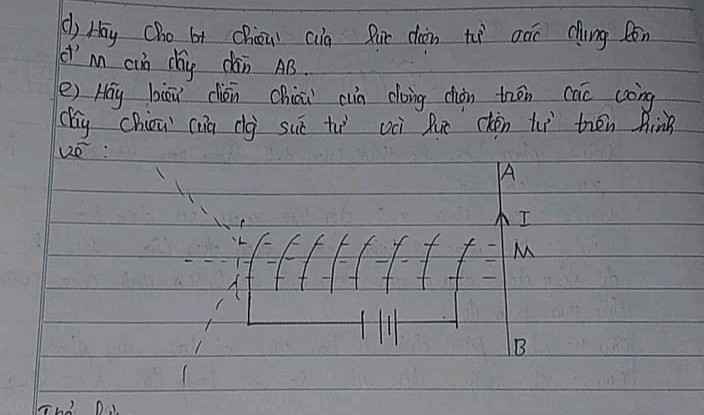 d) Hãy cho bt chiều của lực điện từ tác dụng lên
đ' M của dây dẫn AB.
e) Hãy biểu diễn chiều của dòng điện trên các vòng
dây chiều của đg sức từ với lực điện từ trên hình
vẽ :
A
I
M
B